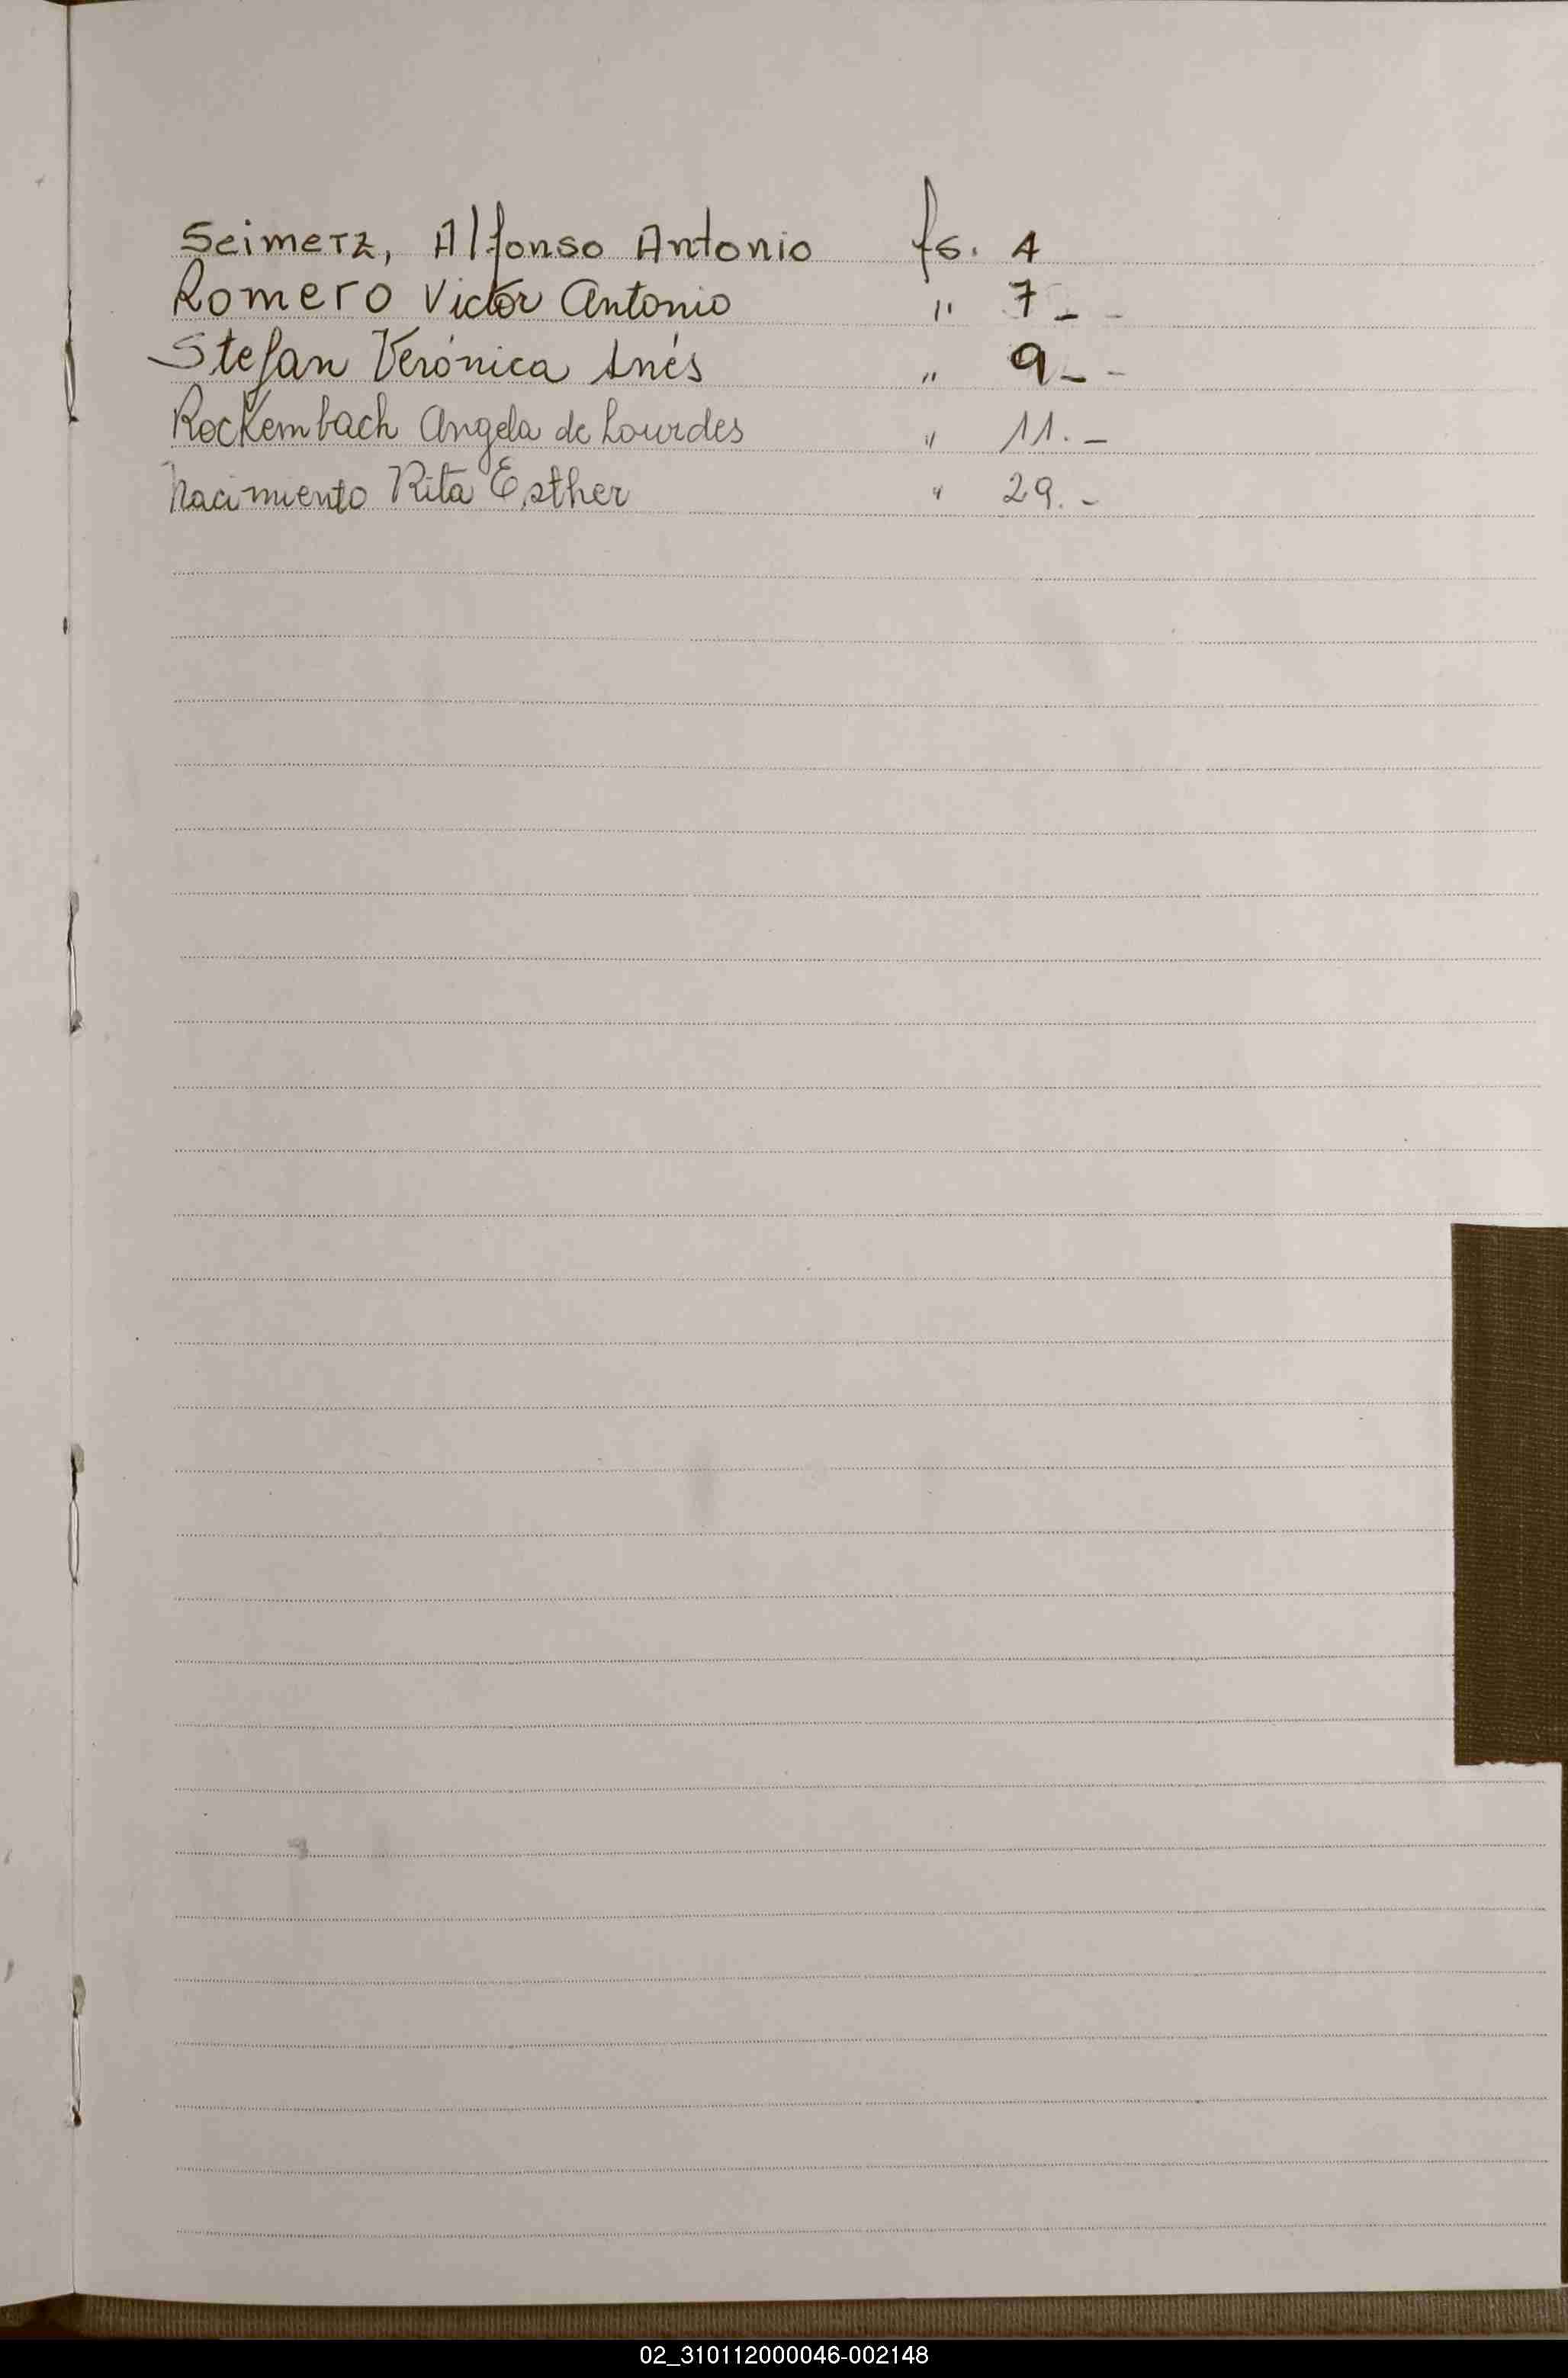 Seimetz, Alfonso Antonio fs. 4
Romero Victor Antonio " 7 - -
Stefan Verónica Inés " 9 - -
Rockembach Angela de Lourdes " 11. -
Nacimiento Rita Esther " 29. -
02_310112000046-002148